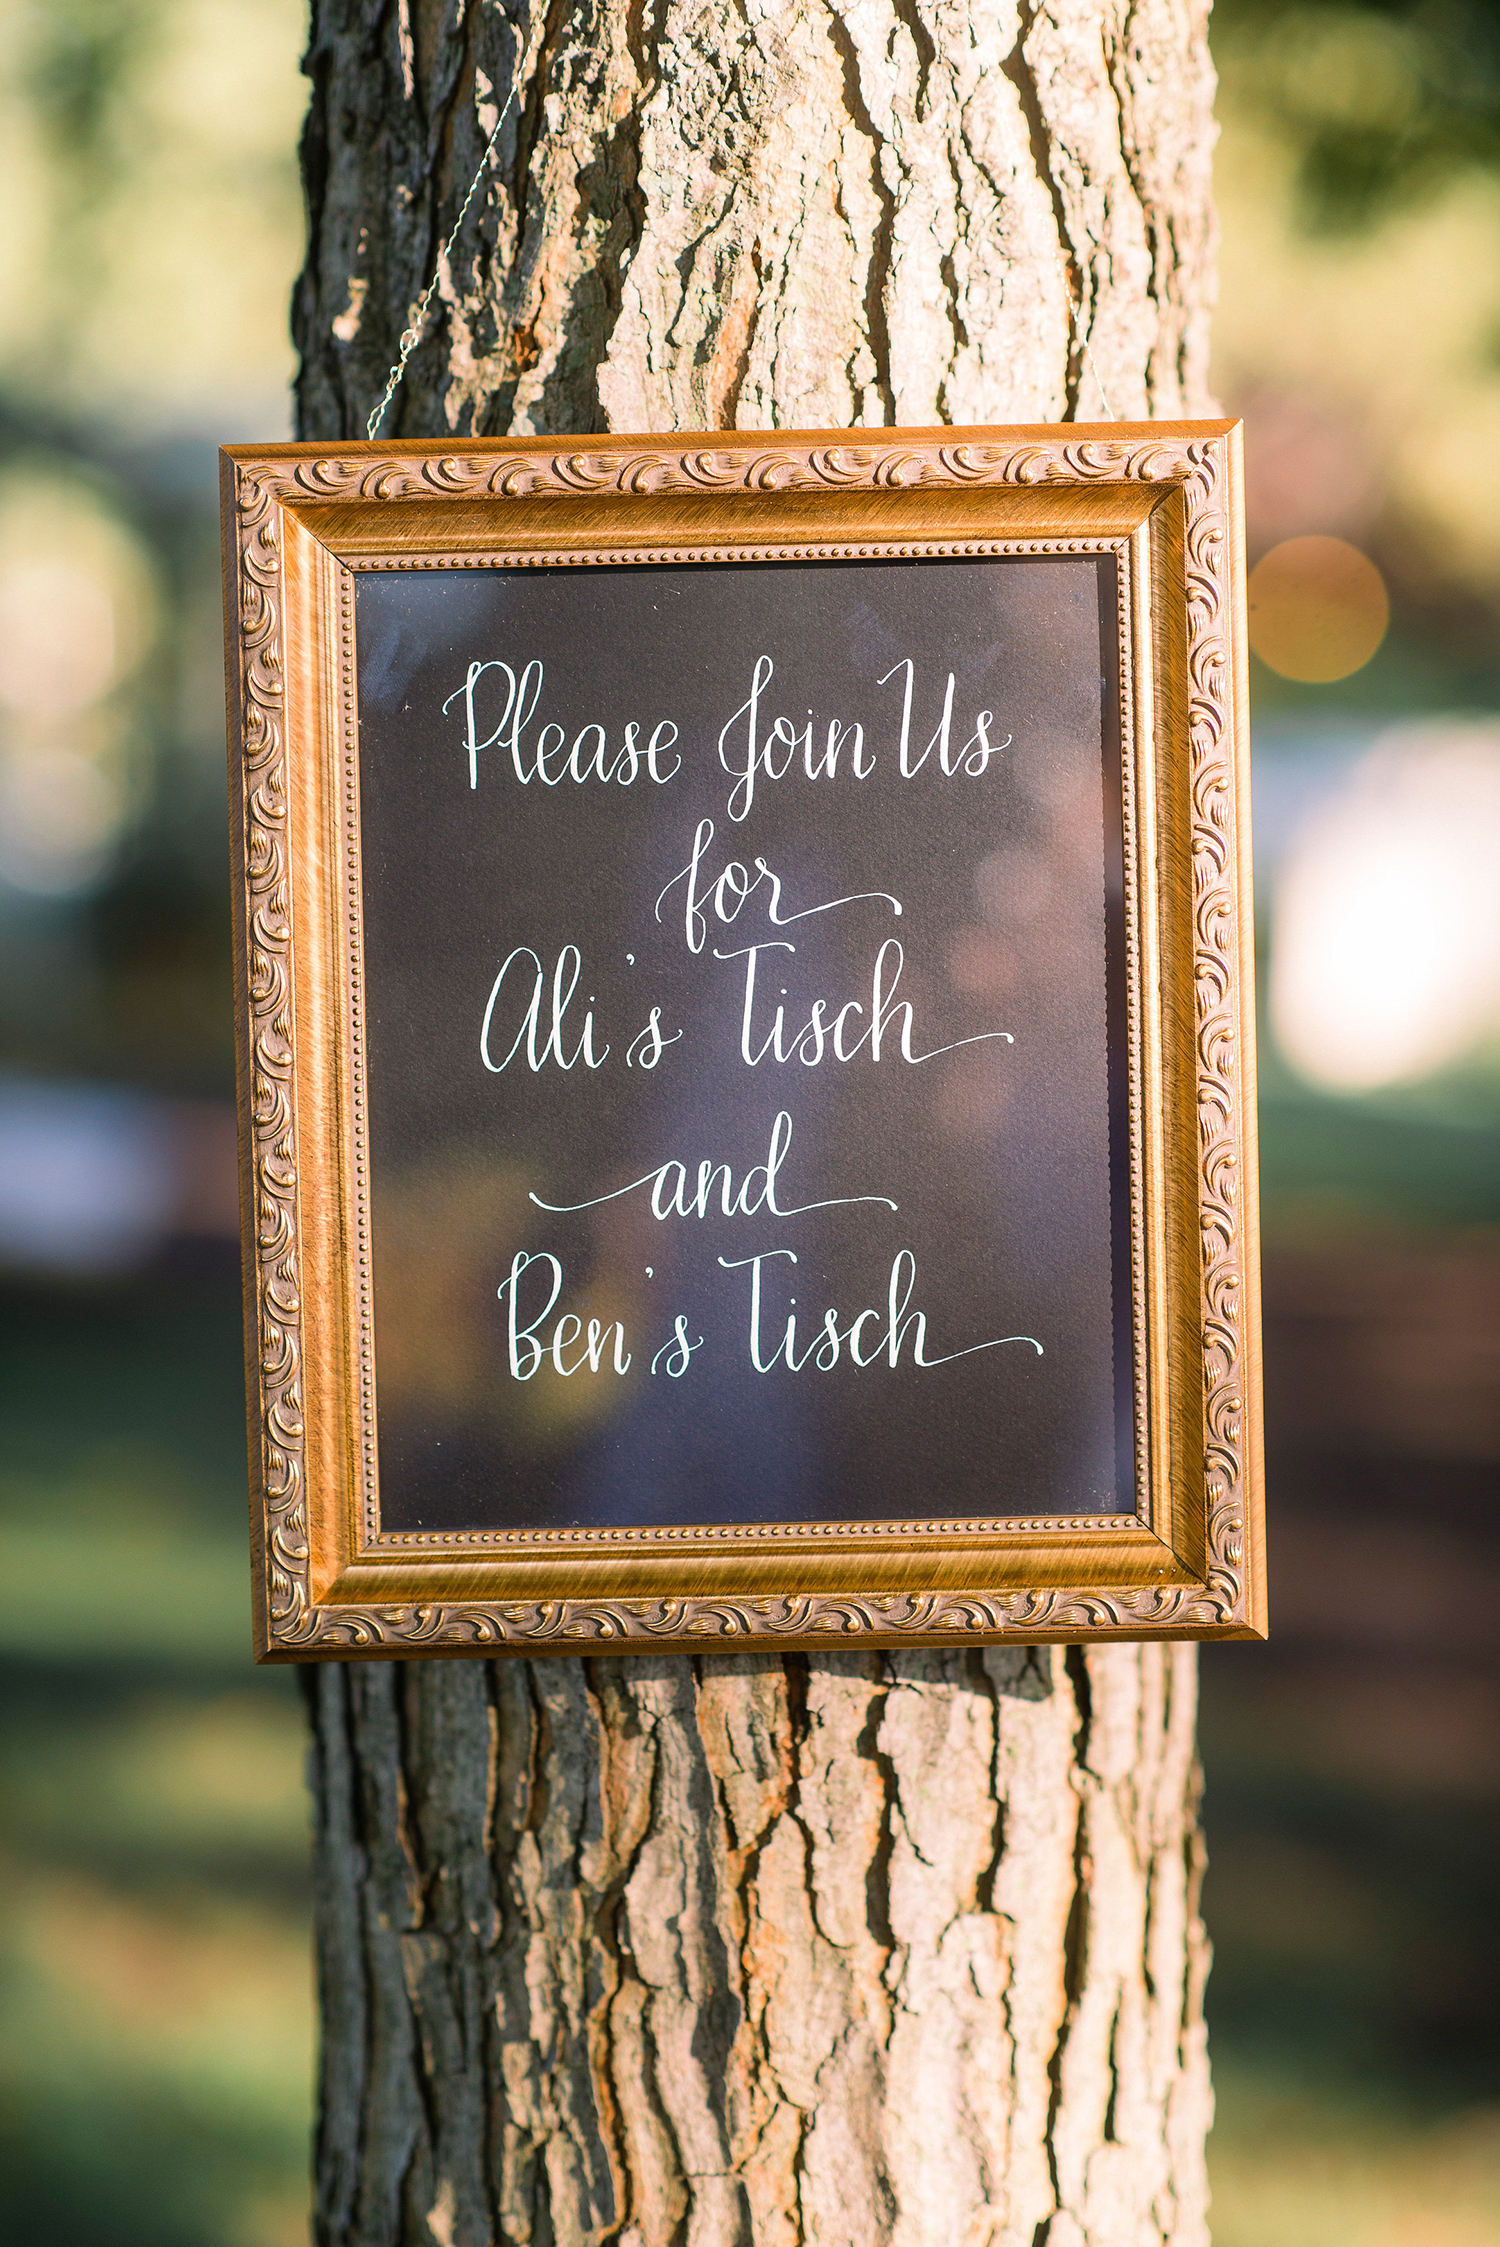 Please Join Us
for
Ali's Tisch
and
Ben's Tisch